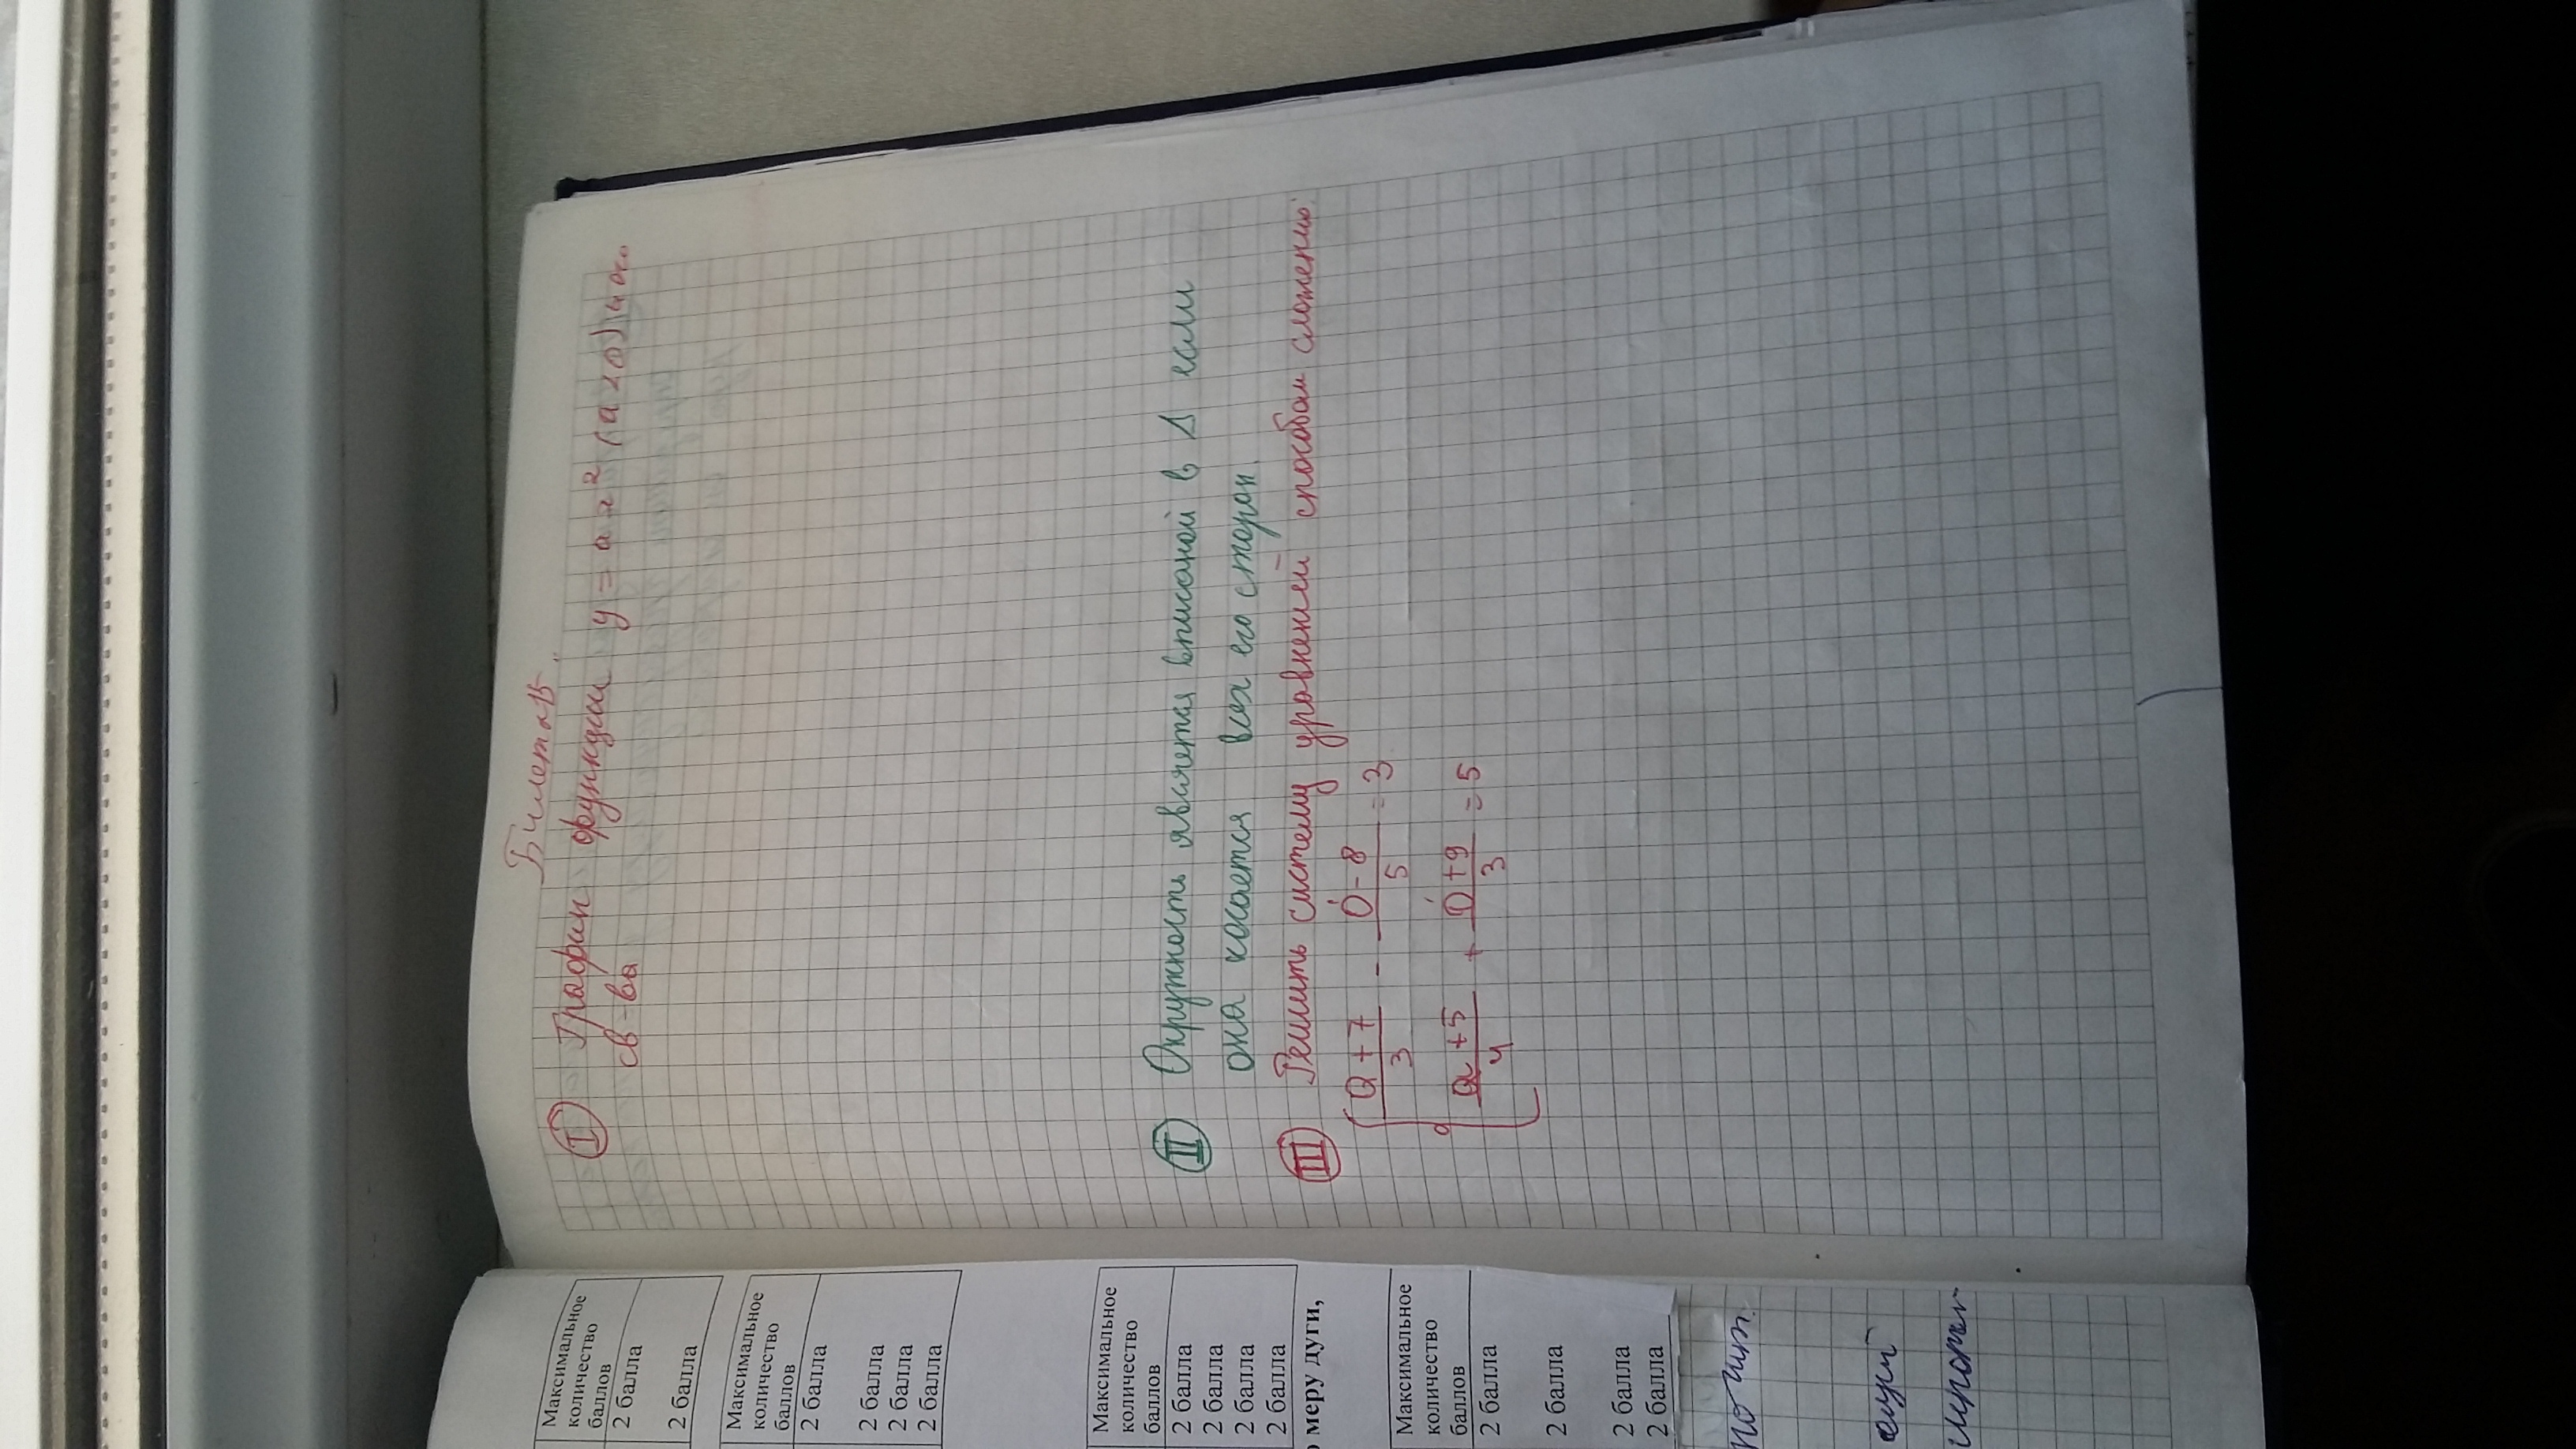 Билет
I График функции y = ax² (a<0) и ос.
св-ва
II Окружность является вписаной в Δ если
она касается всех его сторон.
III Решить систему уравнений способом сложению
a+7/3 - b-8/5 = 3
a+5/4 + b+9/3 = 5
Максимальное
количество
баллов
2 балла
2 балла
Максимальное
количество
баллов
2 балла
2 балла
2 балла
2 балла
Максимальное
количество
баллов
2 балла
2 балла
2 балла
2 балла
о меру дуги,
Максимальное
количество
баллов
2 балла
2 балла
2 балла
2 балла